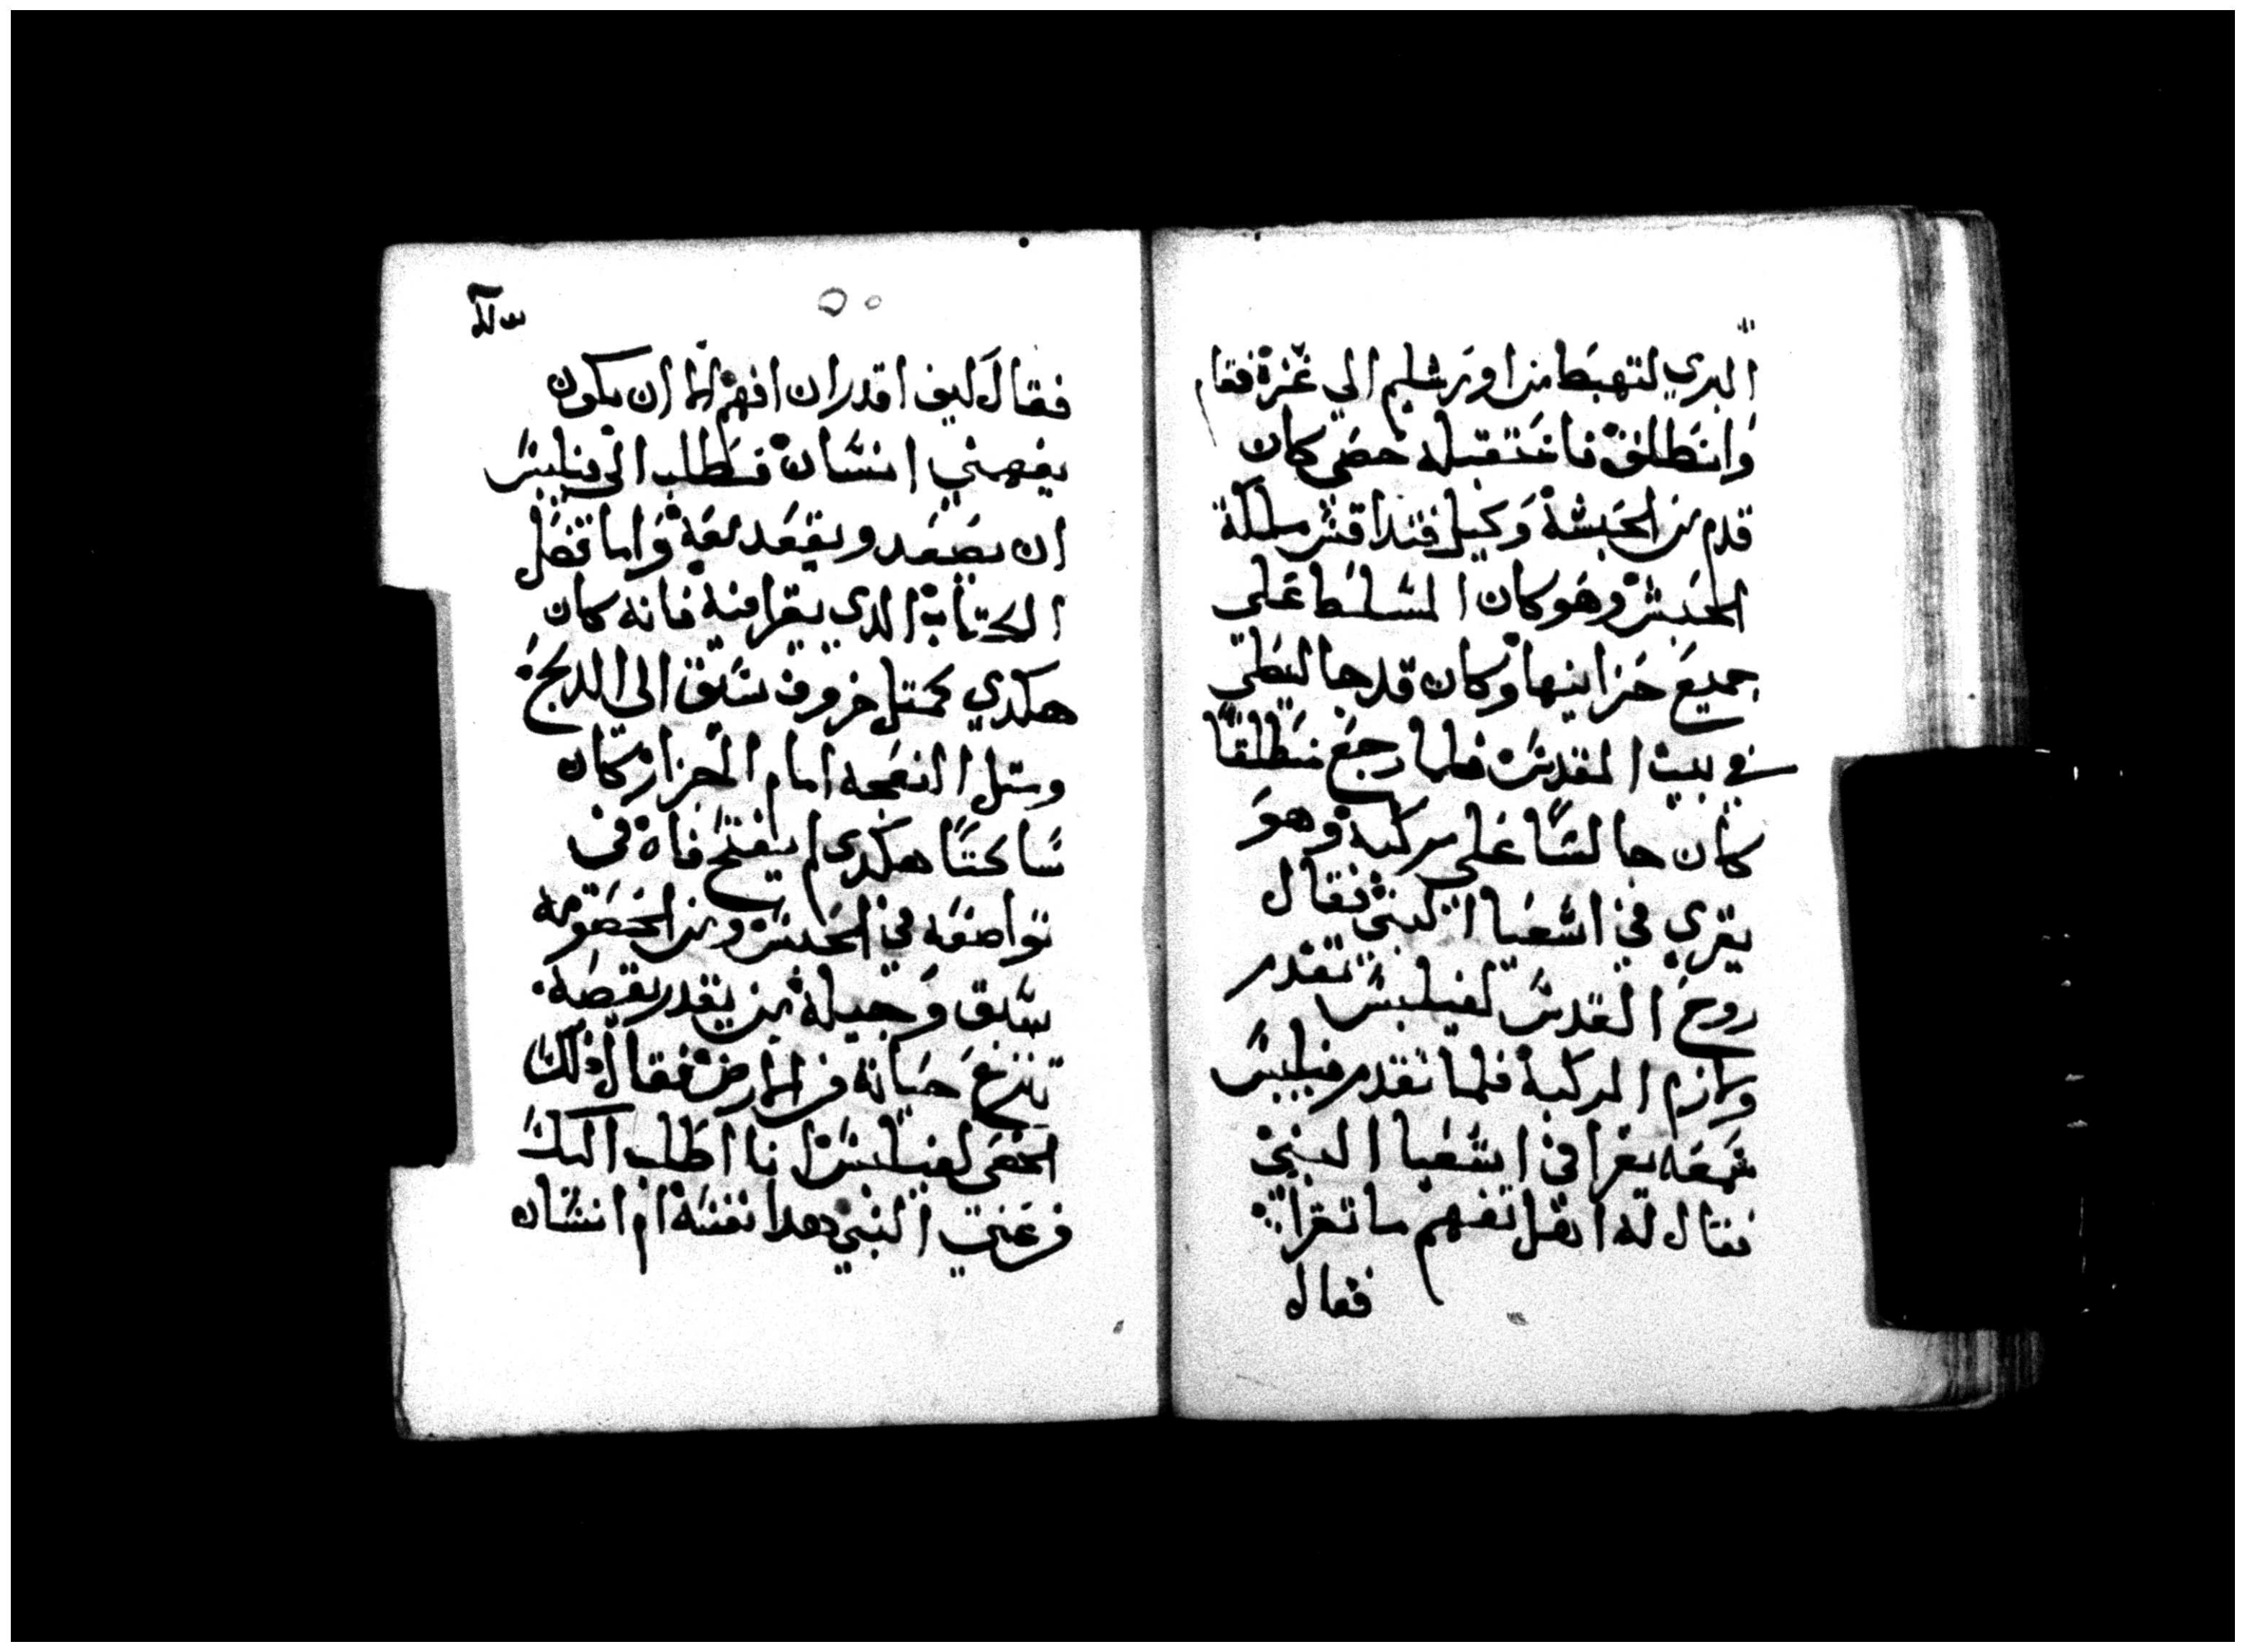 البري لتهبط من اورشليم الي غزة فقام
وانطلق فاستقبله خصي كان
قدم من الحبشة وكيل قنداقس ملكة
الحبش وهو كان المسلط علي
جميع خزاينها وكان قد جا ليصلي
في بيت المقدس فلما رجع منطلقا
كان جالسا علي مركبة وهو
يقري في اشعيا النبي فقال
روح القدس لفيلبس تقدم
ولازم المركبة فلما تقدم فيلبس
سمعه يقرا في اشعيا النبي
فقال له اتقل تفهم ما تقرا
فقال
٥٠
فقال كيف اقدر ان افهم الا ان يكون
يفهمني انسان فطلب الى فيلبس
ان يصعد ويقعد معه واما فصل
الكتاب الدي يقرا فيه فانه كان
هكدي كمتل خروف سيق الى الدبح
ومتل النعجه امام الجزاز كان
ساكتا هكدى لم يفتح فاه في
تواضعه في الحبس ومن الخصومه
سيق وجيله من يقدر يقصه
تنزع حياته من الارض فقال ذلك
الخصي لفيلبس انا اطلب اليك
فرعني النبي بهدا نفسه ام انسان